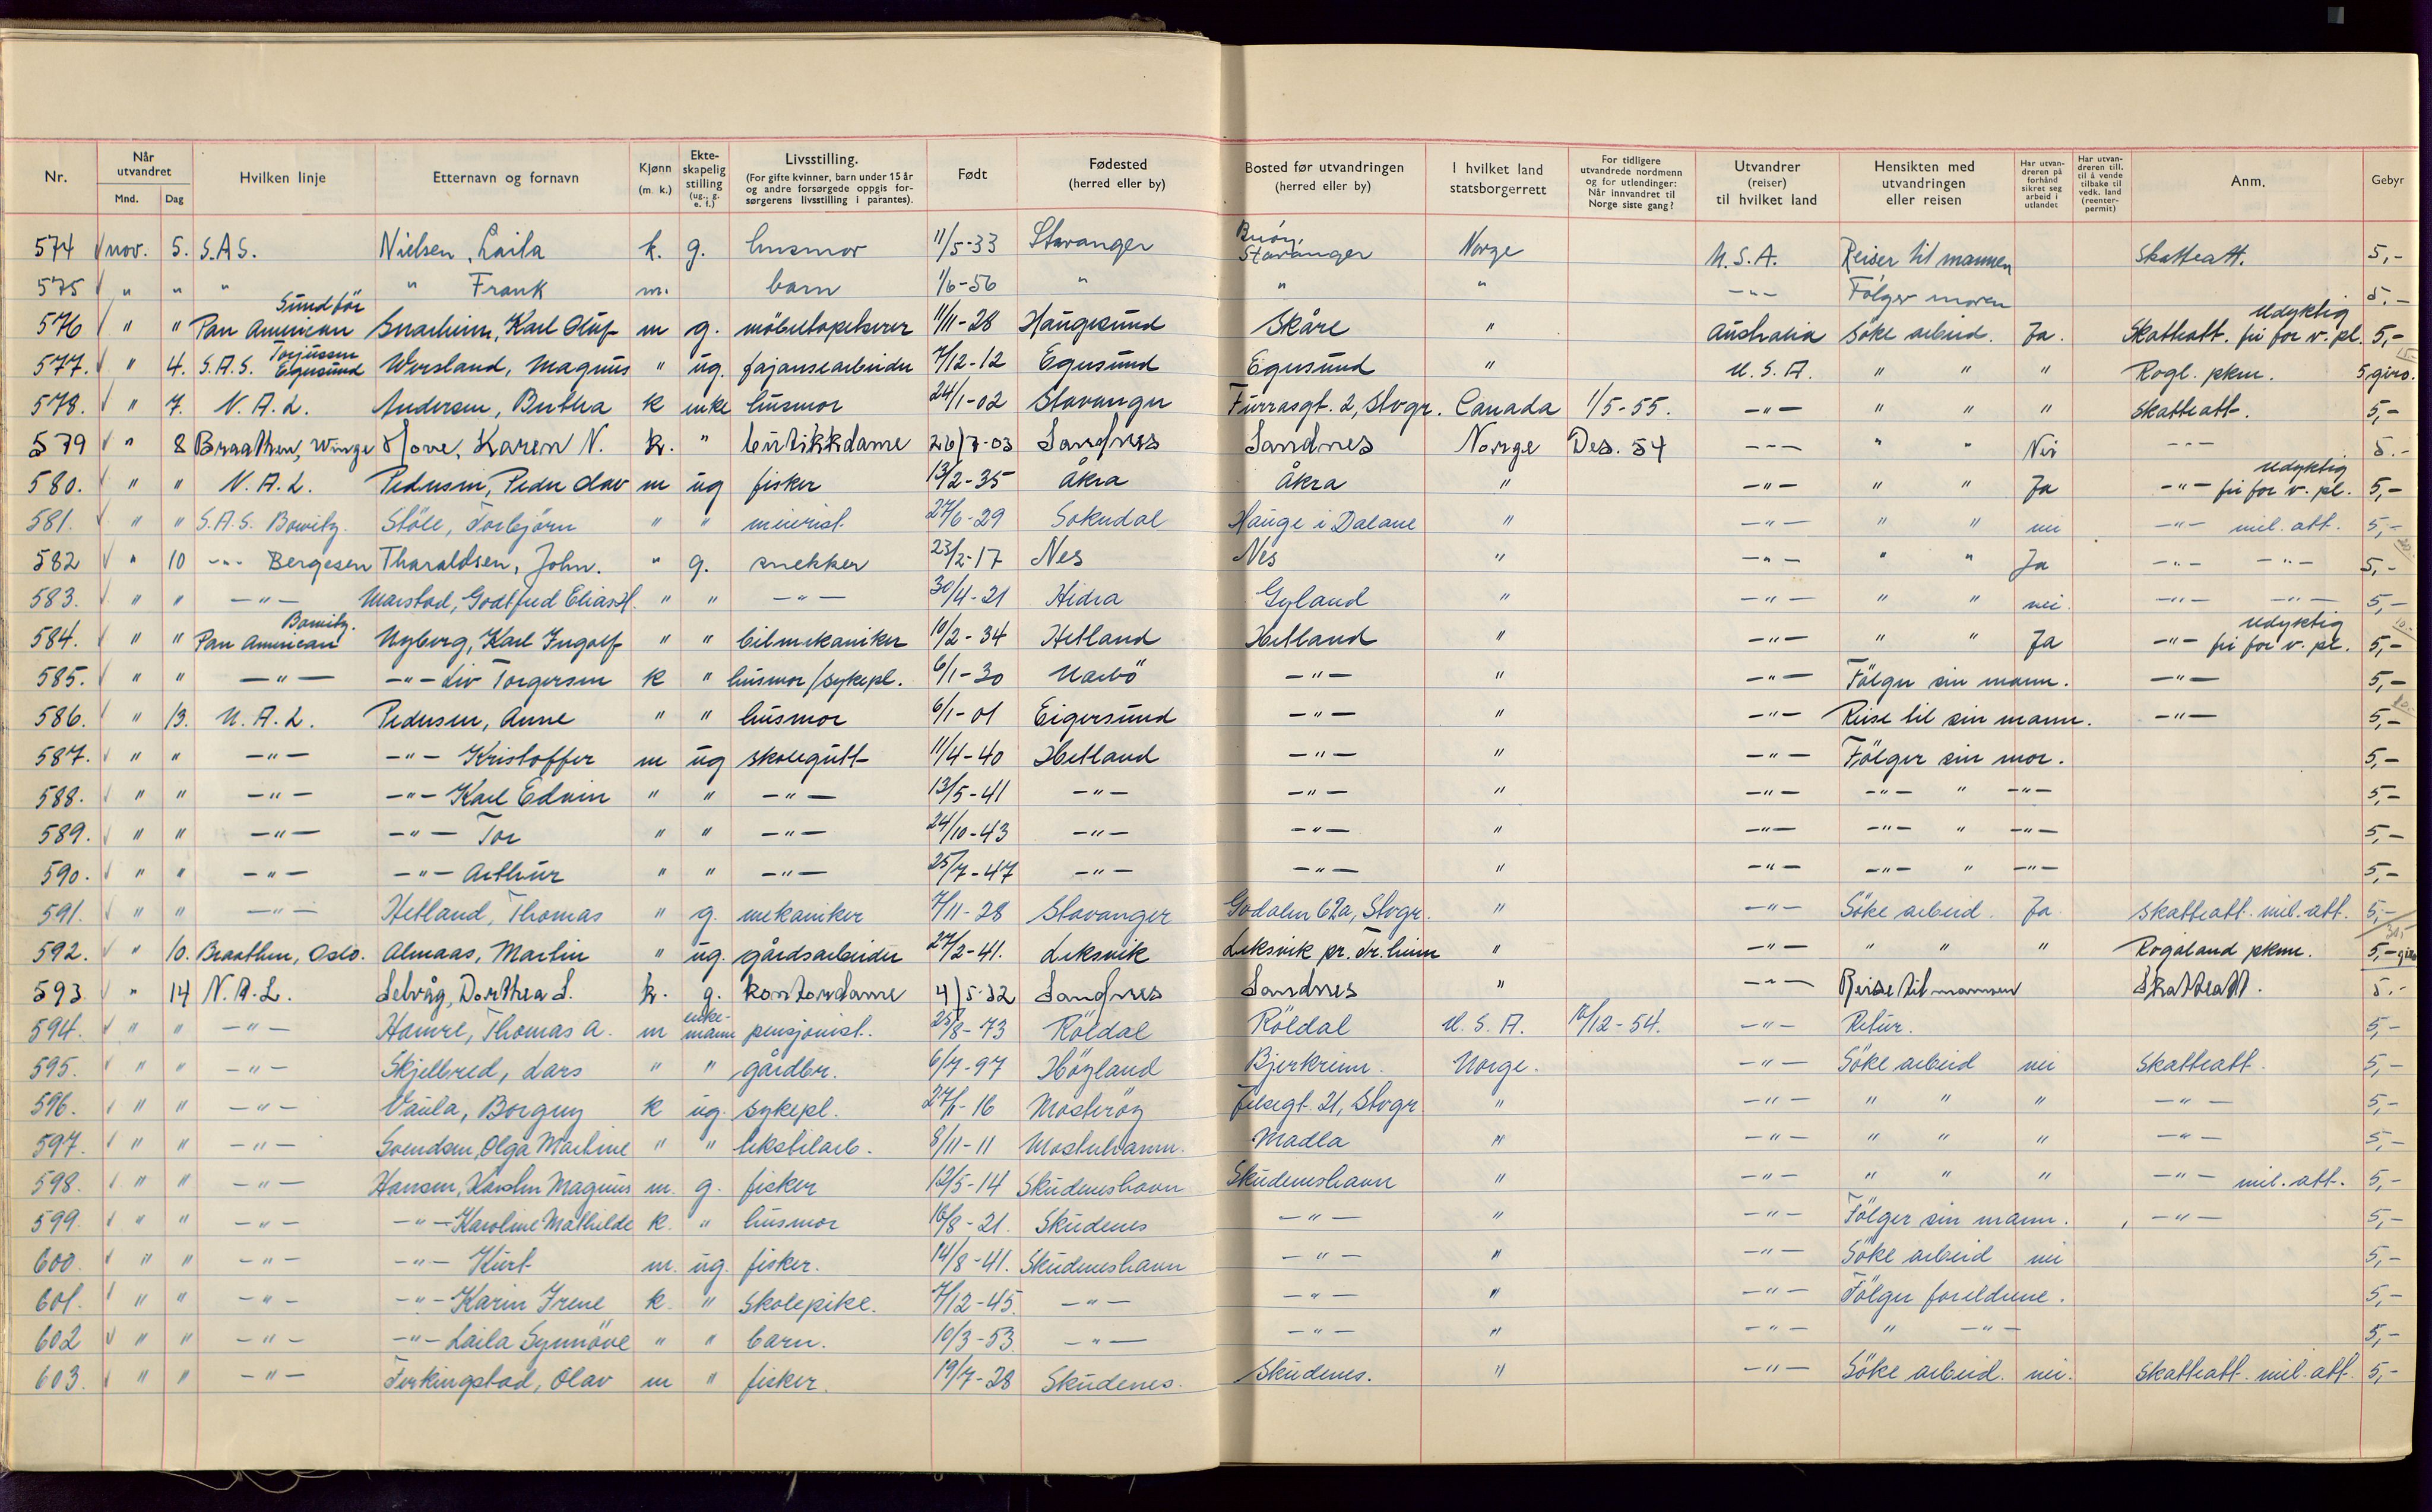 Nr. | Når utvandret Mnd. Dag | Hvilken linje | Etternavn og fornavn | Kjønn (m. k.) | Ekteskapelig stilling (ug., g. e. f.) | Livsstilling. (For gifte kvinner, barn under 15 år og andre forsørgede oppgis forsørgerens livsstilling i parantes). | Født | Fødested (herred eller by) | Bosted før utvandringen (herred eller by) | I hvilket land statsborgerrett | For tidligere utvandrede nordmenn og for utlendinger: Når innvandret til Norge siste gang? | Utvandrer (reiser) til hvilket land | Hensikten med utvandringen eller reisen | Har utvandreren på forhånd sikret seg arbeid i utlandet | Har utvandreren till. til å vende tilbake til vedk. land (reenterpermit) | Anm. | Gebyr
574 nov. 5. S.A.S. Nielsen, Laila k. g. husmor 11/5-33 Stavanger Buøy, Stavanger Norge U.S.A. Reiser til mannen Skatteatt. 5,-
575 " " " " Frank m. barn 1/6-56 " " " -"- Følger moren 5.-
576 " " Pan American Sundför Karl Oluf m g. möbeltapetserer 11/11-28 Haugesund Skåre " Australia Söke arbeid. Ja. Skatteatt. Udyktig fri for v. pl. 5,-
577. " 4. S.A.S. Torjussen Egersund Magnus " ug. fajansearbeider 7/12-12 Egersund Egersund " U.S.A. " " " Rogl. pkm. 5 giro.
578. " 7. N.A.L. Andersen, Bertha k enke husmor 24/1-02 Stavanger Furrasgt. 2, Stvgr. Canada 1/5-55. -"- " " " Skatteatt. 5,-
579 " 8 Braathen, Winge Hove, Karen N. k. " butikkdame 26/7-03 Sandnes Sandnes Norge Des. 54 -"- " " Nei -"- 5.-
580. " " N.A.L. Pedersen, Peder Olav m ug fisker 13/2-35 Åkra Åkra " -"- " " Ja -"- Udyktig fri for v. pl. 5,-
581. " " S.A.S. Bowitz. Stöle, Torbjörn " " meierist. 27/6-29 Sokndal Hauge i Dalane " -"- " " nei -"- mil. att. 5,-
582 " 10 -"- Bergesen Tharaldsen, John. " g. snekker 23/2-17 Nes Nes " -"- " " Ja -"- -"- 5,-
583. " " -"- Godtfred Elias H. " " -"- 30/4-21 Hidra Gyland " -"- " " nei. -"- -"- 5,-
584. " " Pan American Bowitz. Nyberg, Karl Ingolf " " bilmekaniker 10/2-34 Hetland Hetland " -"- " " Ja -"- Udyktig fri for v. pl. 5,-
585. " " -"- -"- Liv Torgersen k " husmor/sykepl. 6/1-30 Narbö -"- " -"- Fölger sin mann. -"- 5,-
586. " 13. N.A.L. Pedersen, Anne " " husmor 6/1-01 Eigersund -"- " -"- Reise til sin mann. -"- 5,-
587. " " -"- -"- Kristoffer m ug skolegutt 11/4-40 Hetland -"- " -"- Fölger sin mor. 5,-
588. " " -"- -"- Karl Edvin " " -"- 13/5-41 -"- -"- " -"- -"- " -"- 5,-
589. " " -"- -"- Tor " " -"- 24/10-43 -"- -"- " -"- -"- " -"- 5,-
590. " " -"- -"- Arthur " " -"- 25/7-47 -"- -"- " -"- -"- " -"- 5,-
591. " " -"- Hetland, Thomas " g. mekaniker 7/11-28 Stavanger Godalen 62a, Stvgr. " -"- Söke arbeid. Ja Skatteatt. mil. att. 5,-
592. " 10. Braathen, Oslo. Almaas, Martin " ug. gårdsarbeider 27/2-41. Leksvik Leksvik pr. Tr.heim " -"- " " " Rogaland pkm. 5,- giro
593 " 14 N.A.L. Selvåg, Dorthea S. k. g. kontordame 4/5-32 Sandnes Sandnes " -"- Reise til mannen Skatteatt. 5.-
594. " " -"- Hamre, Thomas A. m enkemann pensjonist. 25/8-73 Röldal Röldal U.S.A. 10/12-54. -"- Retur. 5,-
595. " " -"- Skjelbred, Lars " " gårdbr. 6/7-97 Höyland Bjerkreim. Norge. -"- Söke arbeid nei Skatteatt. 5,-
596. " " -"- Vaula, Borgny k ug. sykepl. 27/1-16 Mosteröy 21, Stvgr " -"- " " " -"- 5,-
597. " " -"- Svendsen, Olga Martine " " tekstilarb. 8/11-11 Mosterhamn. Madla " -"- " " " -"- 5,-
598. " " -"- Hansen, Karsten Magnus m. g. fisker 12/5-14 Skudeneshavn Skudeneshavn " -"- " " " -"- mil. att. 5,-
599. " " -"- -"- Karoline Mathilde k. " husmor 16/8-21. Skudenes -"- " -"- Fölger sin mann. -"- 5,-
600. " " -"- -"- Kurt m. ug. fisker. 14/8-41. Skudeneshavn -"- " -"- Söke arbeid nei 5,-
601. " " -"- -"- Karin Irene k. " Skolepike. 7/12-45. -"- -"- " -"- Fölger foreldrene. 5,-
602 " " -"- -"- Laila Synnöve " " barn. 10/3-53. -"- -"- " -"- " -"- 5,-
603. " " -"- Ferkingstad, Olav m " fisker. 19/7-28 Skudenes. Skudenes. " -"- Söke arbeid. nei. Skatteatt. mil. att. 5,-